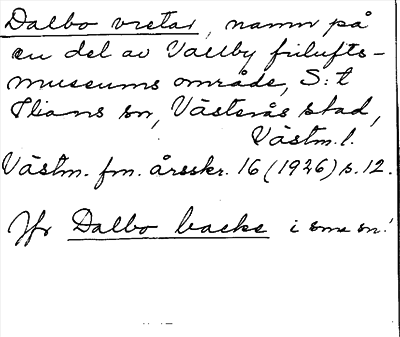 Dalbo vretar, namn på
en del av Vallby frilufts-
museums område, S:t
Ilians sn, Västerås stad,
Västm. l.
Västm. fm. årsskr. 16 (1926) s. 12.
Jfr Dalbo backe i sma sn!